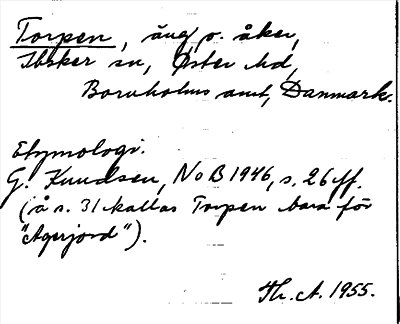 Torpen, äng o. åker,
Ibsker sn, Øster hd,
Bornholms amt, Danmark.
Etymologi.
G. Knudsen, NoB 1946, s. 26 ff.
(å s. 31 kallas Torpen bara för
"Agerjord").
Th. A. 1955.